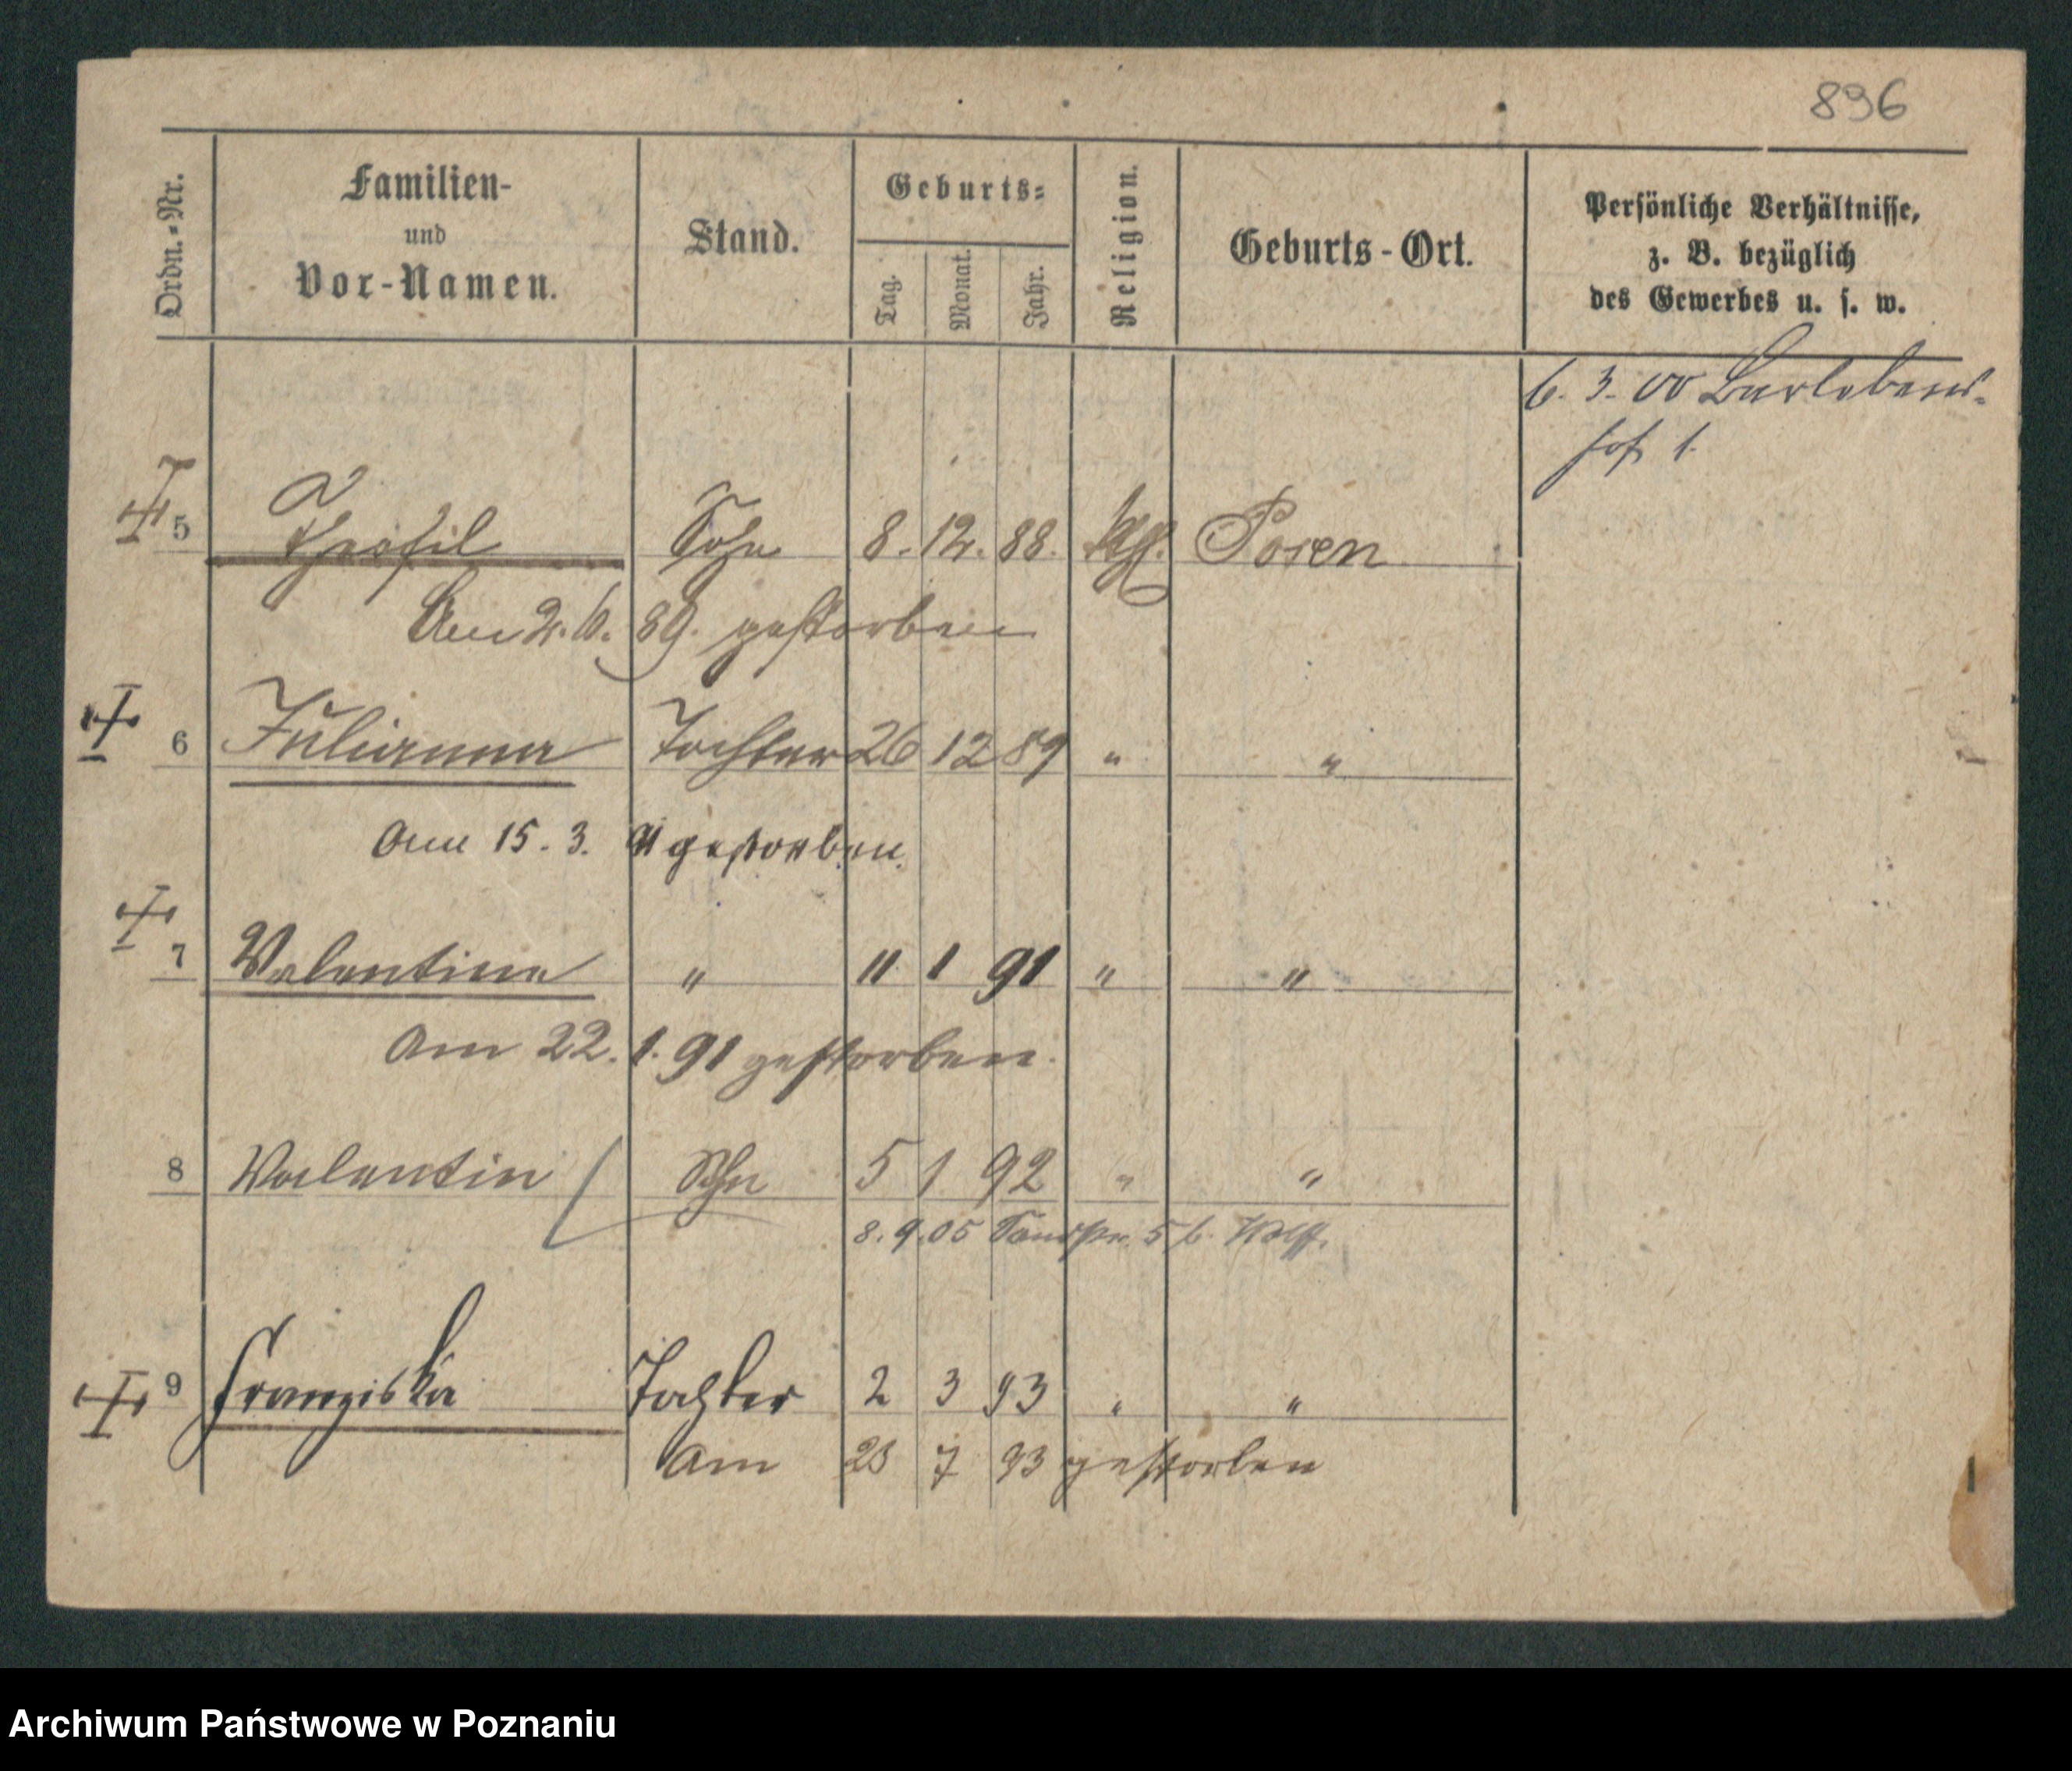 896
Ordn.-Nr.
Familien-
und
Vor-Namen.
Stand.
Geburts-
Tag.
Monat.
Jahr.
Religion.
Geburts-Ort.
Persönliche Verhältnisse,
z. B. bezüglich
des Gewerbes u. s. w.
6. 3. 00 Barlebens-
hof 1.
5 Theofil Sohn 8. 12. 88. kth. Posen
Am 2. 6. 89. gestorben
6 Julianna Tochter 26 12 89 " "
Am 15. 3. 91 gestorben.
7 Valentine " 11 1 91 " "
Am 22. 1. 91 gestorben.
8 Valentin Sohn 5 1 92 " "
8. 9. 05 5 b. Wolff.
9 Franziska Tochter 2 3 93 " "
Am 23 7 93 gestorben
Archiwum Państwowe w Poznaniu